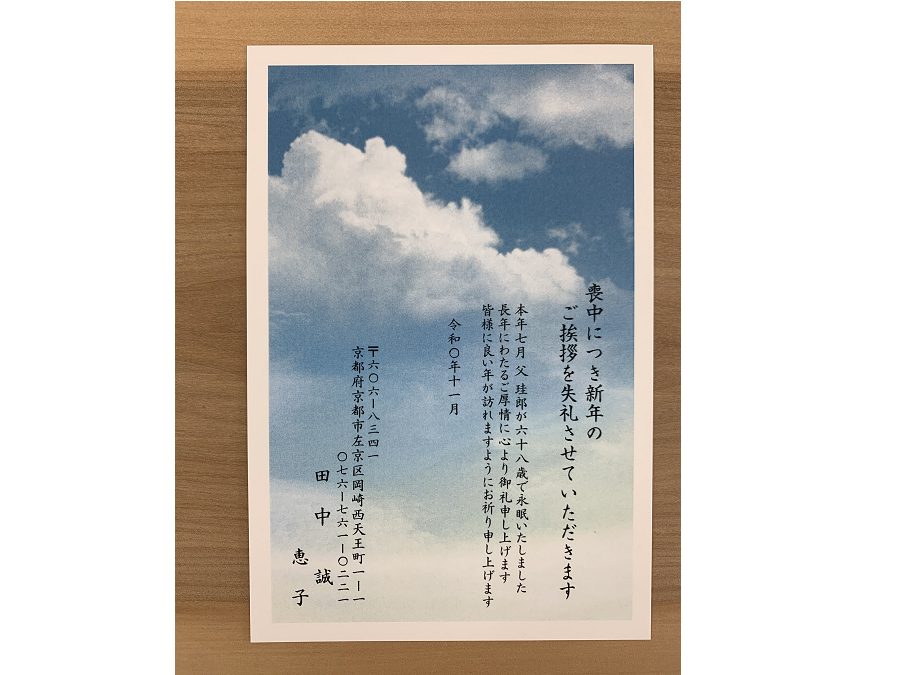 喪中につき新年の
ご挨拶を失礼させていただきます
本年七月 父 珪郎が六十八歳で永眠いたしました
長年にわたるご厚情に心より御礼申し上げます
皆様に良い年が訪れますようにお祈り申し上げます
令和〇年十一月
〒六〇六ー八三四一
京都府京都市左京区岡崎西天王町一ー一
〇七六ー七六一ー〇二二一
田中 誠
恵子